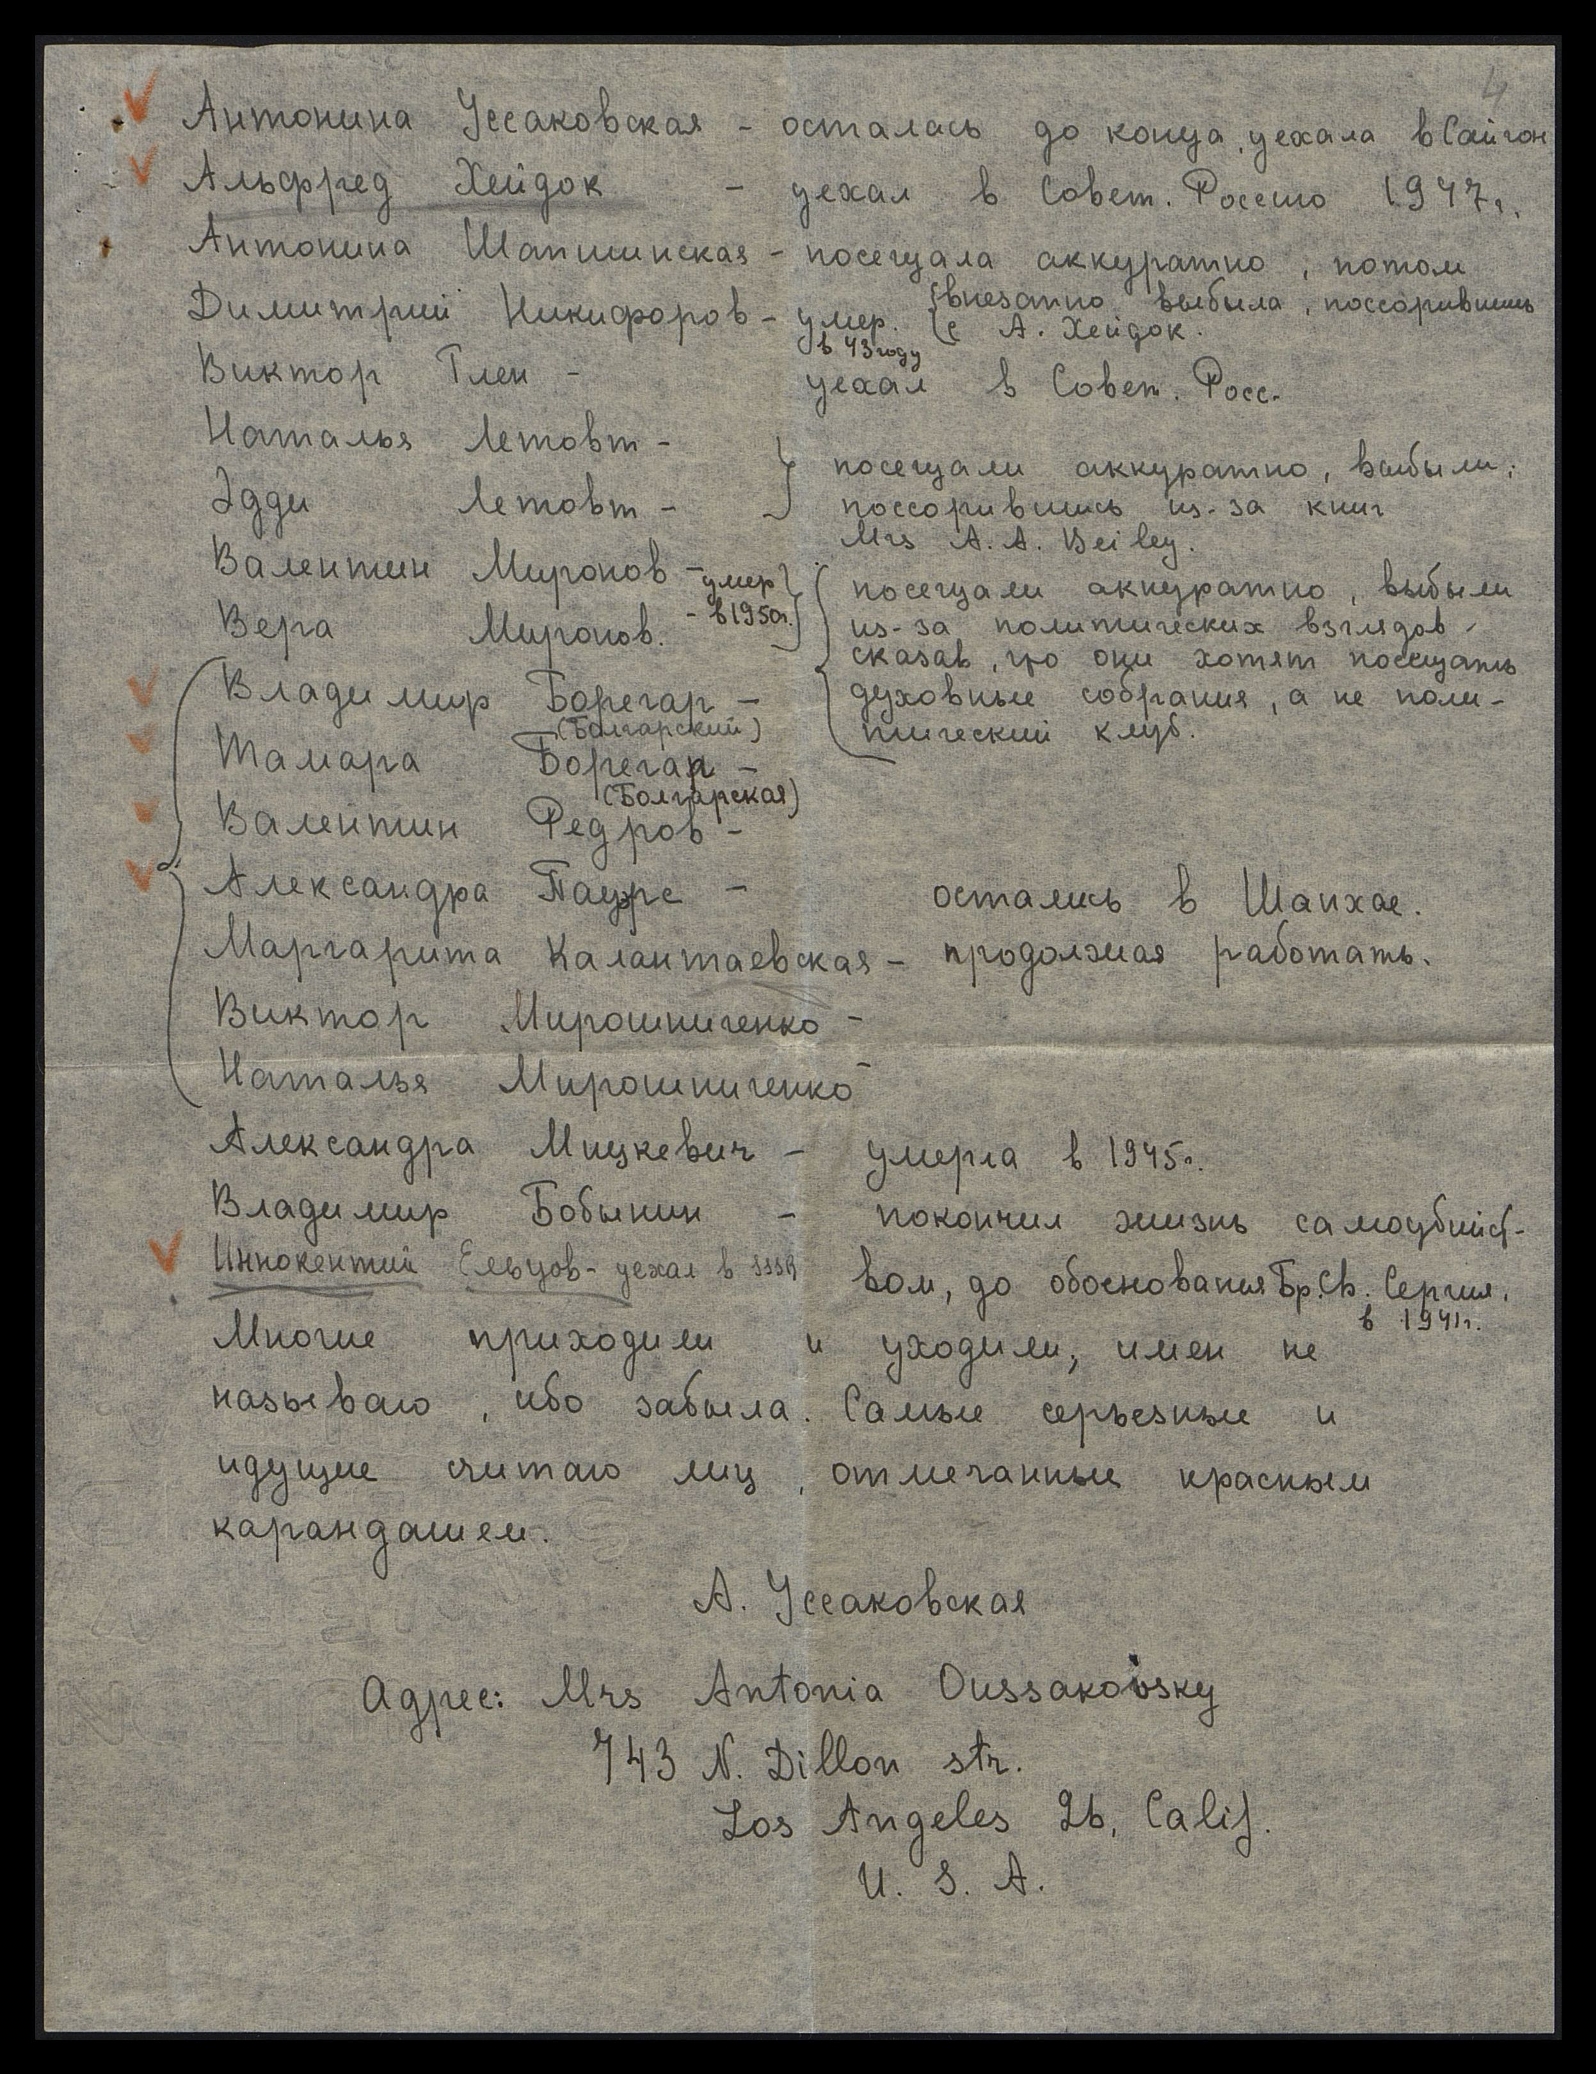 4
Антонина Уссаковская - осталась до конца, уехала в Сайгон
Альфред Хейдок - уехал в Совет. Россию 1947г.
Антонина Шапшинская - посещала аккуратно, потом
{внезапно выбыла, поссорившись
Димитрий Никифоров - умер. {с А. Хейдок.
в 43 году
Виктор Глен - уехал в Совет. Росс.
Наталья Летовт -
посещали аккуратно, выбыли,
Эдди Летовт - } поссорившись из-за книг
Mrs A. A. Beiley.
Валентин Миронов - умер
посещали аккуратно, выбыли
Вера Миронов. - в 1950г. из-за политических взглядов,
сказав, что они хотят посещать
Владимир Борегар - духовные собрания, а не поли-
(Болгарский) тический клуб.
Тамара Борегар -
(Болгарская)
Валентин Федров -
Александра Паурс - остались в Шанхае.
Маргарита Калантаевская - продолжая работать.
Виктор Мирошниченко -
Наталья Мирошниченко -
Александра Мицкевич - умерла в 1945г.
Владимир Бобынин - покончил жизнь самоубийст-
Иннокентий Ельцов - уехал в SSSR
вом, до обоснования Бр. Св. Сергия.
в 1941г.
Многие приходили и уходили, имен не
называю, ибо забыла. Самые серьезные и
идущие считаю лиц, отмечанные красным
карандашем.
А. Уссаковская
Адрес: Mrs Antonia Oussakovsky
743 N. Dillon str.
Los Angeles 26, Calif.
U. S. A.